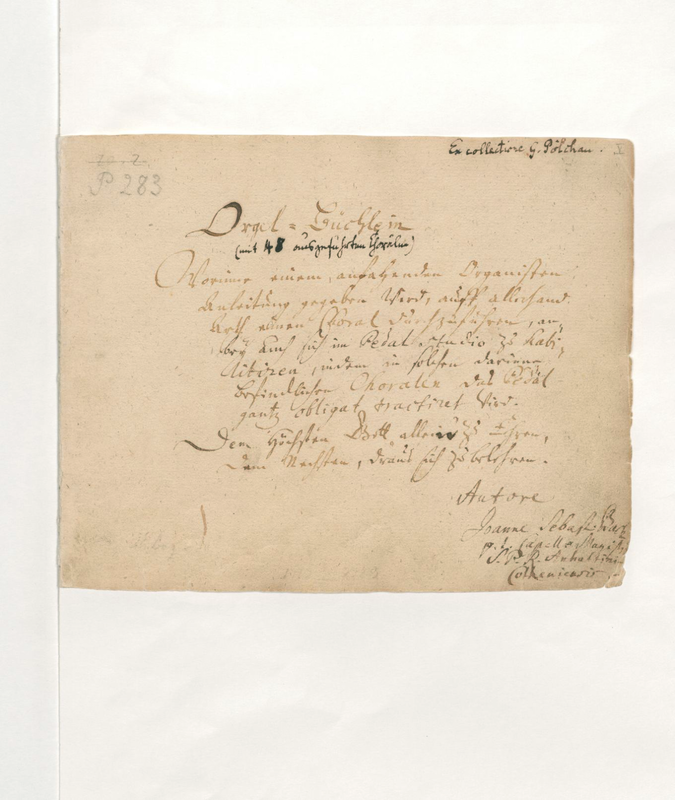 Ex collectione G. Pölchau.
P 283
Orgel-Büchlein
(mit 48 ausgeführten Chorälen)
Worinne einem anfahenden Organisten
Anleitung gegeben wird, auff allerhand
Arth einen Choral durchzuführen, an-
bey auch sich im Pedal studio zu habi-
litiren, indem in solchen darinne
befindlichen Choralen das Pedal
gantz obligat tractiret wird.
Dem Höchsten Gott allein zu Ehren,
Dem Nechsten, draus sich zu belehren.
Autore
Joanne Sebast: Bach
p. t. Capellæ Magistri
S. P. R. Anhaltini-
Cotheniensis.